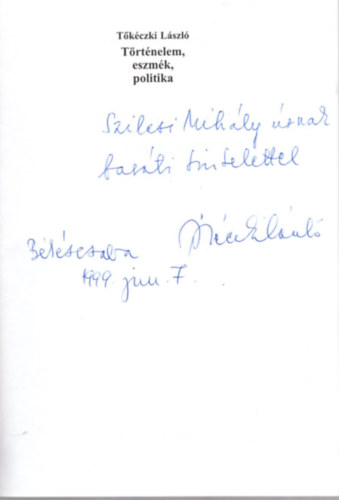 Tőkéczki László
Történelem,
eszmék,
politika
Szilcsi Mihály úrnak
baráti tisztelettel
Békéscsaba
1999. jun. 7.